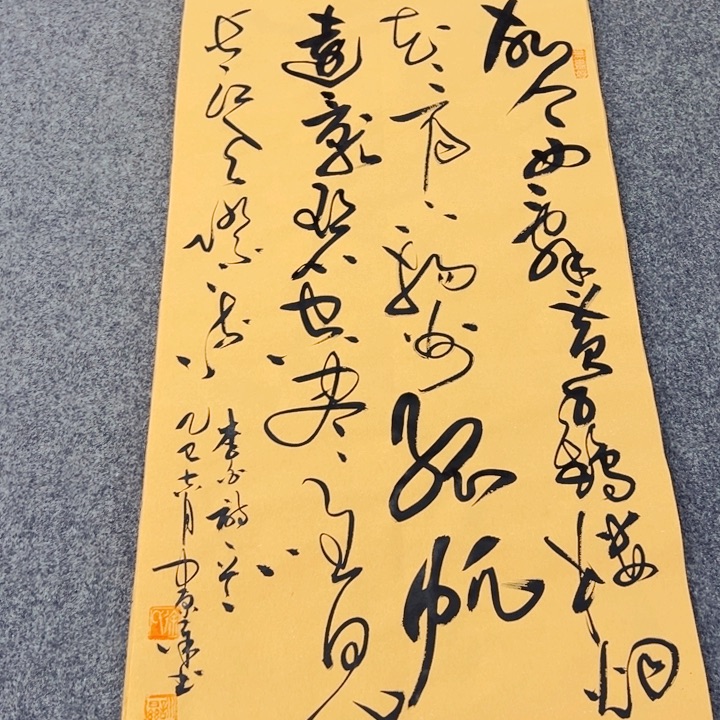 故人西辭黃鶴樓烟
花三月下揚州孤帆
遠影碧空盡唯見
長江天際流
李白詩一首
乙巳六月書